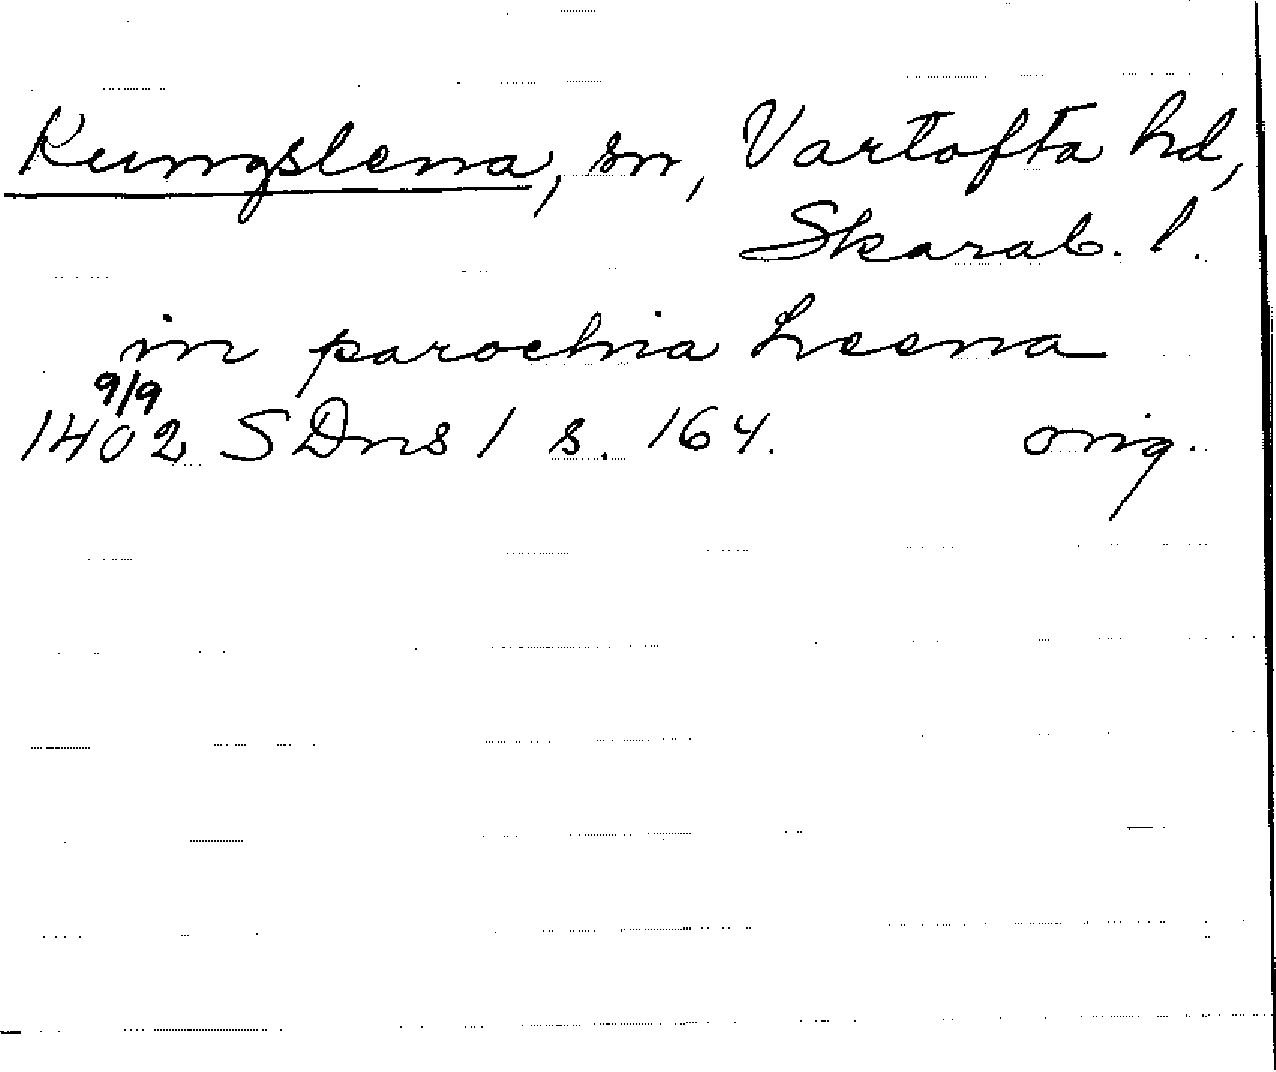 Kungslena, sn, Vartofta hd,
Skarab. l.
in parochia Leena
9/9
1402 SDns 1 s. 164. orig.